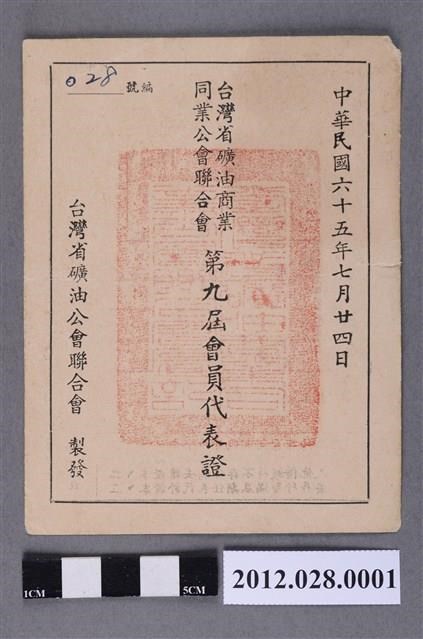 中華民國六十五年七月廿四日
台灣省礦油商業
同業公會聯合會
第九屆會員代表證
編號
028
台灣省礦油公會聯合會 製發
1CM
5CM
2012.028.0001